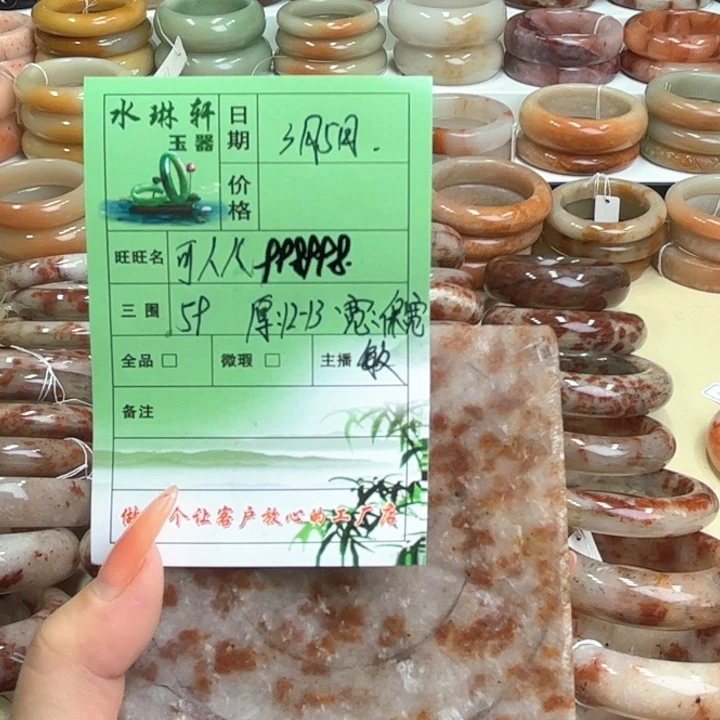 水琳轩
玉器
日期
3月5日.
价格
旺旺名
可人人
三围
59 厚:12-13 宽:保宽
全品 □
微瑕 □
主播
敏
备注
做 个让客户放心的工厂店